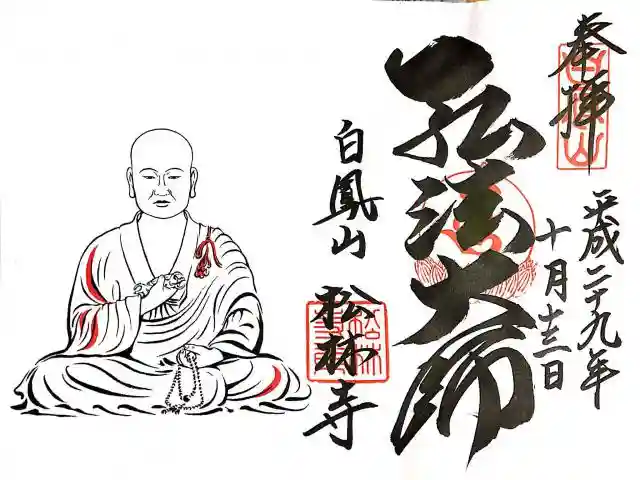 奉拝
平成二十九年
十月十三日
弘法大師
白鳳山
松林寺